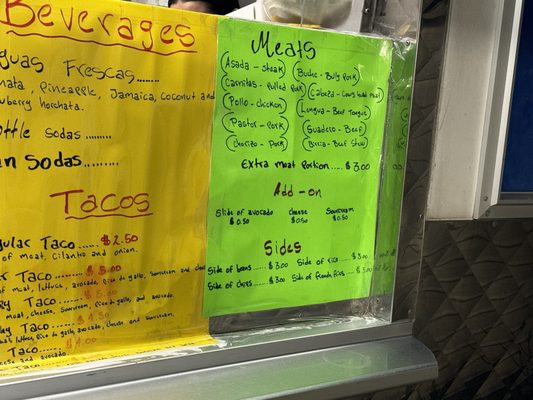 Beverages
guas Frescas........
mata, pineapple, Jamaica, coconut and
wberry horchata.
ttle Sodas.........
n Sodas........
Tacos
gular Taco.....$2.50
of meat, cilantro and onion.
Taco........$5.00
of meat, lettuce, avocado, pico de gallo, sourcream and
ry Taco
meat, cheese, sourcream, pico de gallo, and avocado.
ey Taco.......$4.50
lettuce, pico de gallo, avocado, cheese and sourcream.
Taco.........$4.00
cheese and avocado.
Meats
Asada - Steak
Carnitas - Pulled Pork
Pollo - chicken
Pastor - Pork
Chorizo - Pork
Buche - Bully Pork
Cabeza - Cows head meat
Lengua - Beef Tongue
Guadero - Beef
Birria - Beef Stew
Extra meat Portion.....$3.00
Add-on
Slide of avocado
$0.50
cheese
$0.50
Sourcream
$0.50
Sides
Side of beans.......$3.00
Side of rice......$3.00
Side of chips......$3.00
Side of french fries.....$3.00